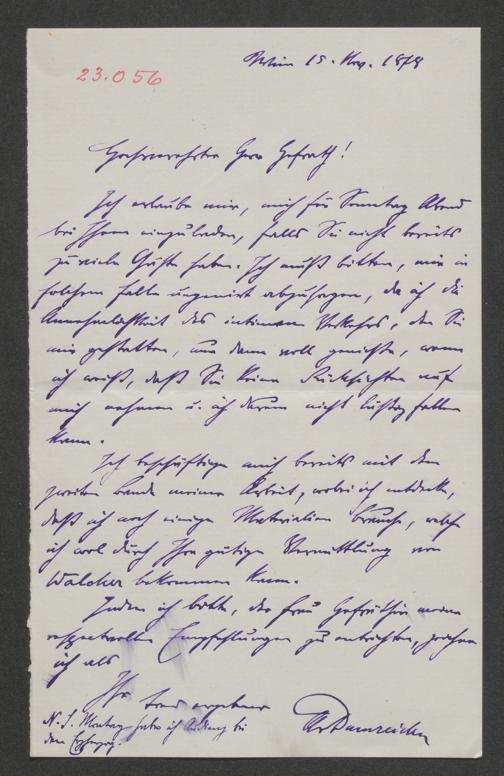 23.056
Wien 15. Nov. 1878
Hochverehrter Herr Hofrath!
Ich erlaube mir, mich für Sonntag Abend
bei Ihnen einzuladen, falls Sie nicht bereits
zu viele Gäste haben. Ich muß bitten, mir in
solchem Falle ungenirt abzusagen, da ich die
Annehmlichkeit des intimen Verkehrs, den Sie
mir gestatten, nur dann voll genieße, wenn
ich weiß, daß Sie keine Rücksichten auf
mich nehmen u. ich darum nicht lästig fallen
kann.
Ich beschäftige mich bereits mit dem
zweiten Bande meiner Arbeit, wobei ich entdecke,
daß ich noch einige Materialien brauche, welche
ich wol durch Ihre gütige Vermittlung von
Walcher bekommen kann.
Indem ich bitte, der Frau Hofräthin meine
respectvollen Empfehlungen zu entrichten, zeichne
ich als
Ihr treu ergebener
ADumreicher
N. S. Montag habe ich Audienz bei
dem Erzherzog.